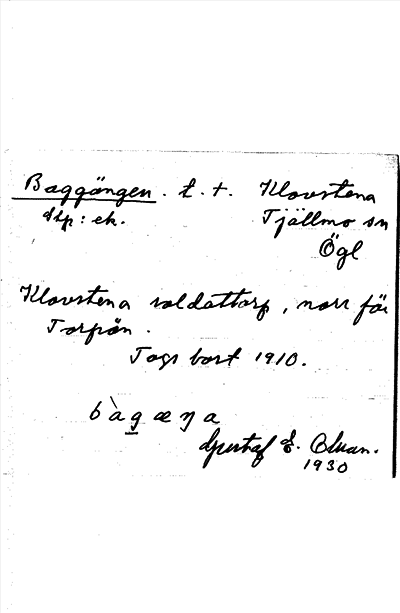 Baggängen. t. +. Klovstena
dlp: ek. Tjällmo sn
Ögl
Klovstena soldattorp, norr för
Torpön.
Togs bort 1910.
bàgæŋa
Gustaf E.
1930